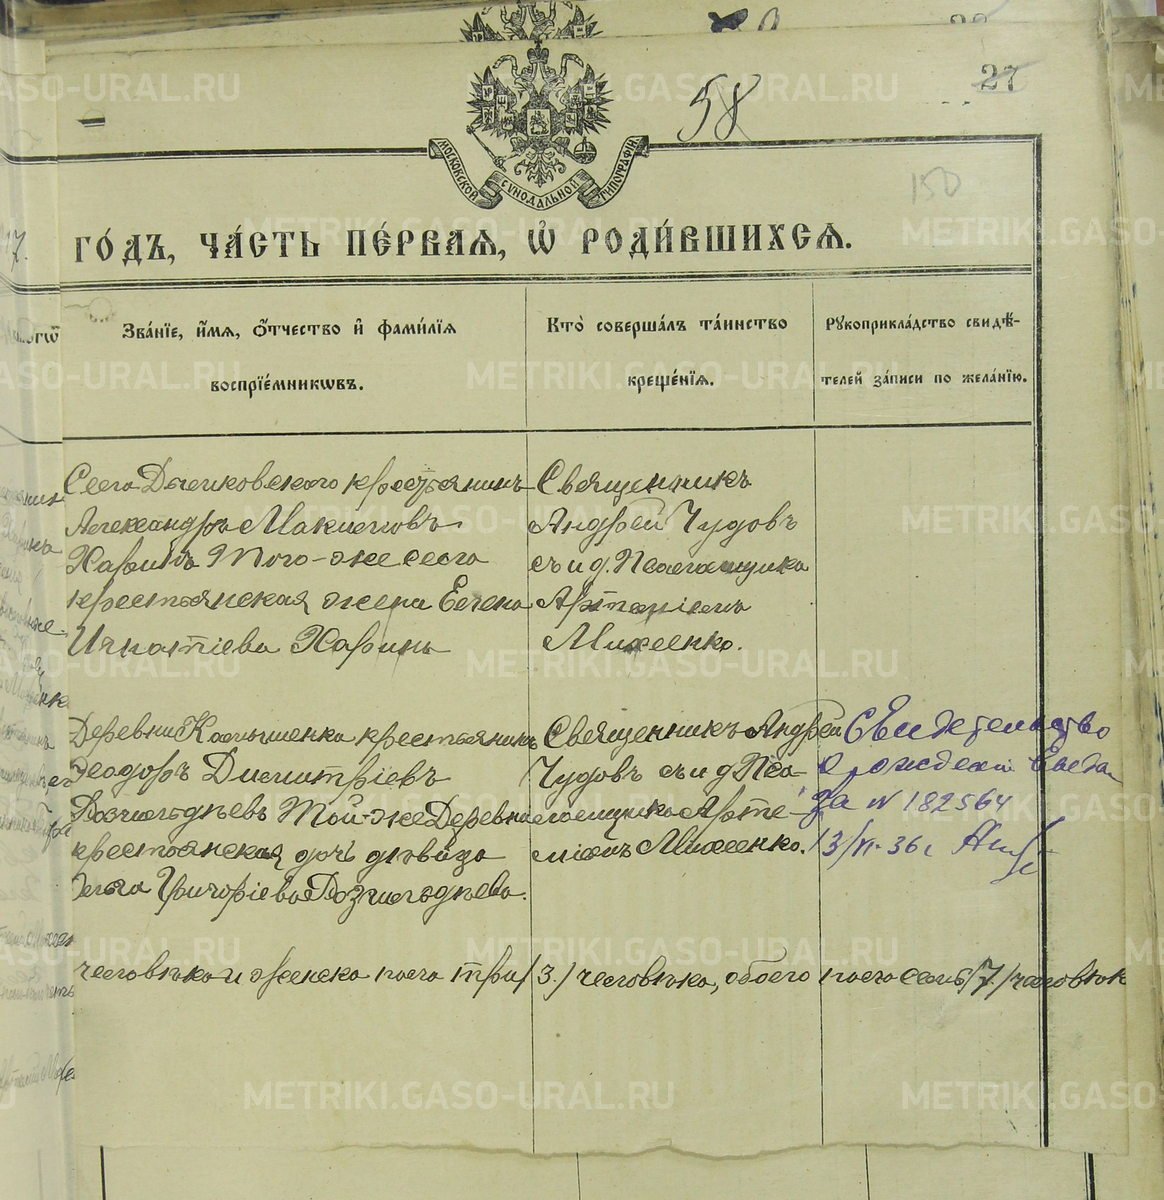 58
27
150
МОСКОВСКОЙ СУНОДАЛЬНОЙ ТИПОГРАФІИ
17.
го́дъ, ча́сть пе́рвая, ѿ роди́вшихся.
Зва́нїе, и҆́мя, ѻ҆́тчество и҆ фами́лїя
воспрїе́мникѡвъ.
Кто̀ соверша́лъ та́инство
креще́нїя.
Рꙋкоприкла́дство свидѣ́-
телей за́писи по жела́нїю.
Села крестьянинъ
Александръ
Харинъ того-же села
крестьянская жена Елена
Игнатіева Харинъ
Священникъ
Андрей Чудовъ
съ и. д. Псаломщика
Артеміемъ
Михеенко.
Деревни Камышенки крестьянинъ
Ѳеодоръ Димитріевъ
той-же Деревни
крестьянская дочь дѣвица
Ольга Григоріева
Священникъ Андрей
Чудовъ съ и д Пса-
ломщика Арте-
міемъ Михеенко.
Свидетельство
о рождении выда
За N 182564
13/VI-36 г
человѣка и женска пола три /3./ человѣка, обоего пола семь /7./ человѣкъ
METRIKI.GASO-URAL.RU